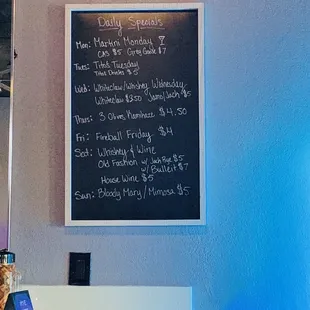 Daily Specials
Mon: Martini Monday
CRS $5 Grey Goose $7
Tues: Titos Tuesday
Titos Drinks $5
Wed: Whiteclaw/Whiskey Wednesday
Whiteclaw $3.50 Jamo/Jack $5
Thurs: 3 Olives, Kamikaze $4.50
Fri: Fireball Friday $4
Sat: Whiskey & Wine
Old Fashion w/ Jack Rye $5
w/ Bulleit $7
House Wine $5
Sun: Bloody Mary/Mimosa $5